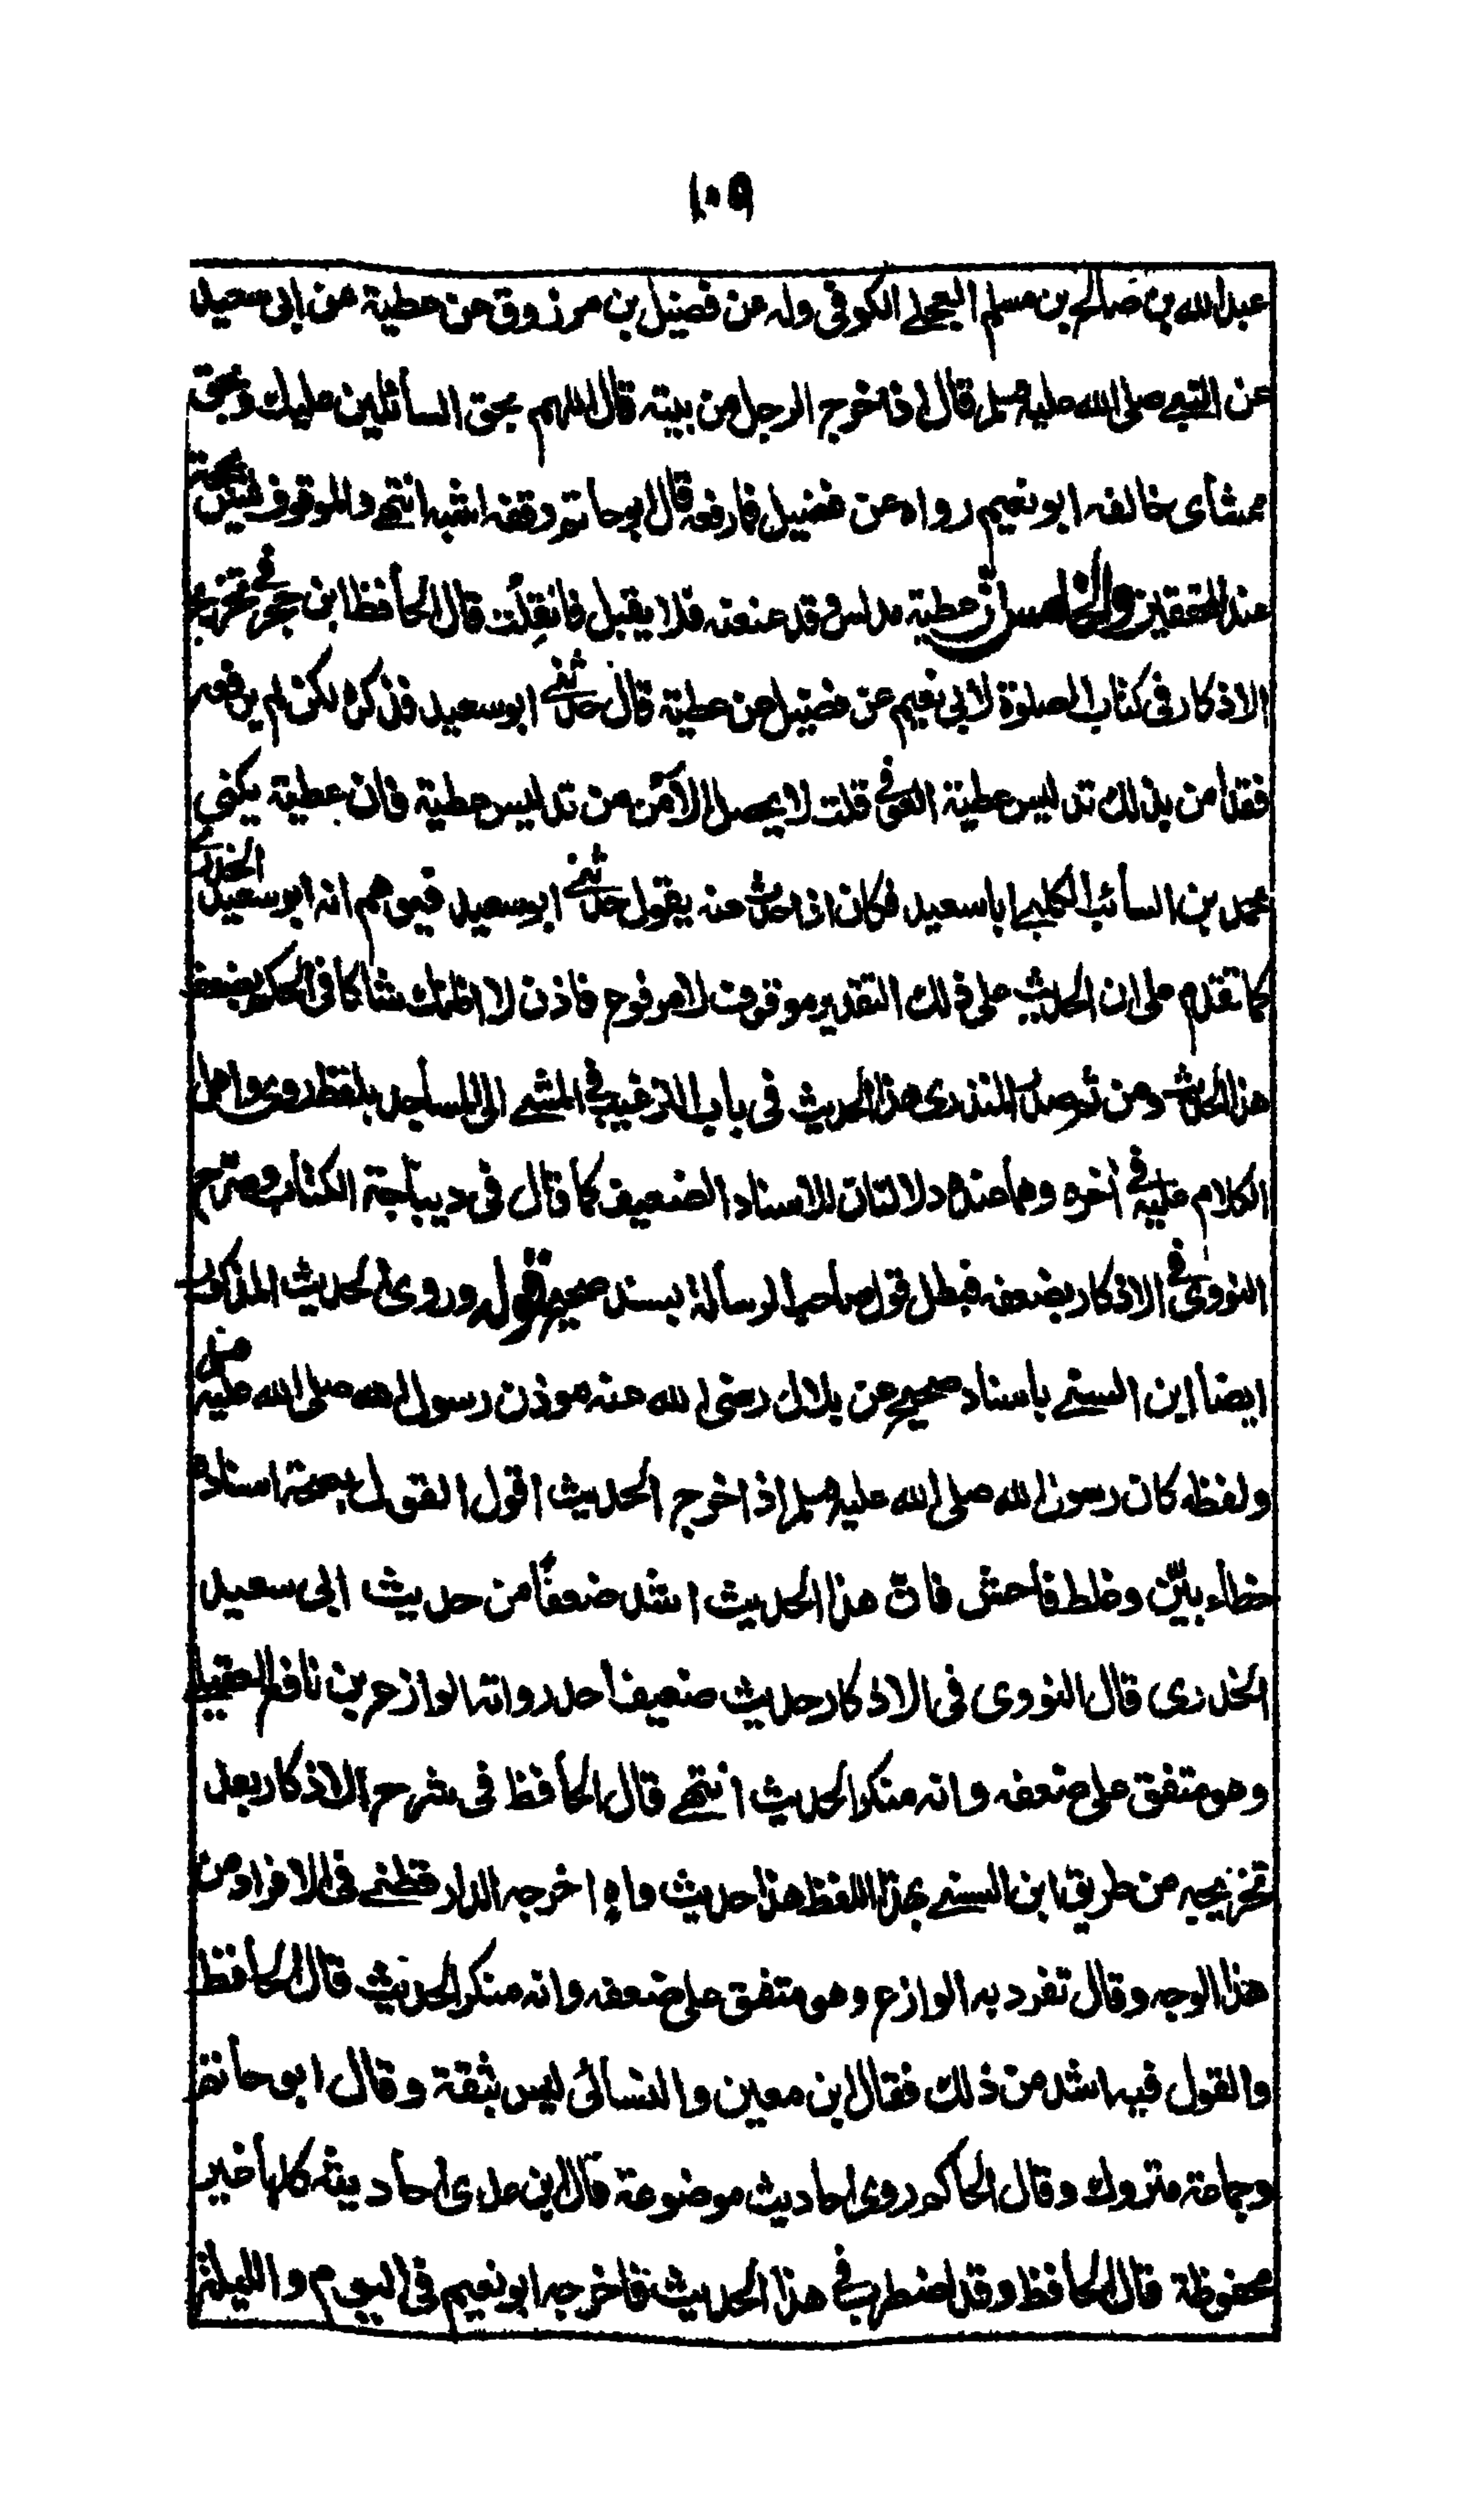 ١٠٩
عبد الله بن صالح بن مسلم العجلي الكوفي وله عن فضيل بن مرزوق عن عطية عن ابي سعيد
عن النبي صلى الله عليه وسلم قال اذا خرج الرجل من بيته قال اللهم بحق السائلين عليك وبحق
ممشاى خالفه ابو نعيم رواه عن فضيل فما رفعه قال ابو حاتم وقفه اشبه انتهى والموقوف ليس بحجة
عند المحققين والخامس ان عطية مدلس وقد عنعنه فلا يقبل فان قلت قال الحافظ ابن حجر في تخريج
الاذكار فى كتاب الصلوة لابي نعيم عن فضيل عن عطية قال حدثني ابو سعيد فذكره لكن لم يرفعه
فقد امن بذلك تدليس عطية العوفي قلت لا يحصل الا من من تدليس عطية فان عطية يكنى
محمد بن السائب الكلبي ابا سعيد فكان اذا حدث عنه يقول حدثني ابو سعيد فيوهم انه ابو سعيد الخدري
كما تقدم على ان الحديث على ذلك التقدير موقوف لا مرفوع فاذن لا اظنك شاكا فى الحكم بضعف
هذا الحديث ومن ثم صدر المنذرى هذا الحديث فى باب الترغيب في المشي الى المساجد بلفظ روى واهمل
الكلام عليه في اخره وهما عنده دلالتان للاسناد الضعيف كما قال فى ديباجة الكتاب وصرح
النووي في الاذكار بضعفه فبطل قول صاحب الرسالة بسند صحيح قوله وروى الحديث المذكور
ايضا ابن السني باسناد صحيح عن بلال رضى الله عنه موذن رسول الله صلى الله عليه وسلم
ولفظه كان رسول الله صلى الله عليه وسلم اذا خرج الحديث اقول القول بصحة اسناده
خطاء بيّن وغلط فاحش فان هذا الحديث اشد ضعفًا من حديث ابي سعيد
الخدرى قال النووى فى الاذكار حديث ضعيف احد رواته الوازع بن نافع العقيلي
وهو متفق على ضعفه وانه منكر الحديث انتهى قال الحافظ فى شرح الاذكار بعد
تخريجه من طريق ابن السني بهذا اللفظ هذا حديث واه اخرجه الدارقطني فى الافراد من
هذا الوجه وقال تفرد به الوازع وهو متفق على ضعفه وانه منكر الحديث قال الحافظ
والقول فيه اشد من ذلك فقال ابن معين والنسائى ليس بثقة وقال ابو حاتم
وجماعة متروك وقال الحاكم روى احاديث موضوعة قال ابن عدى احاديثه كلها غير
محفوظة قال الحافظ وقد اضطرب في هذا الحديث فاخرجه ابو نعيم فى اليوم والليلة